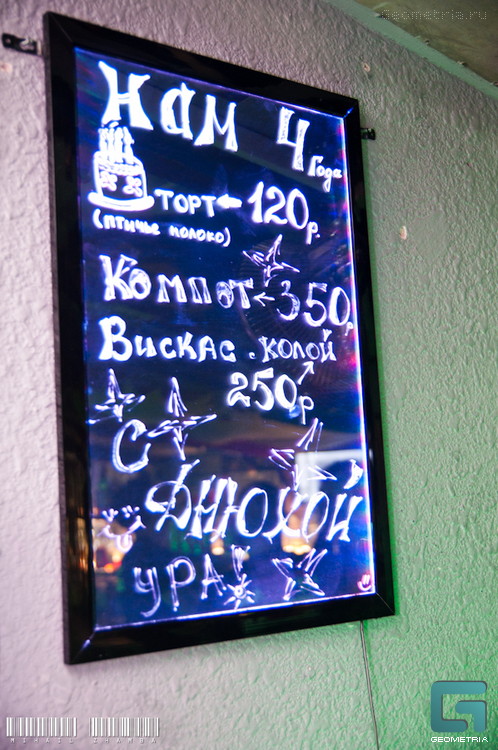 Geometria.ru
НАМ 4 года
ТОРТ ← 120 р.
(птичье молоко)
Компот ← 350р
Вискас .колой
250 р
С
Днюхой
УРА!
GEOMETRIA